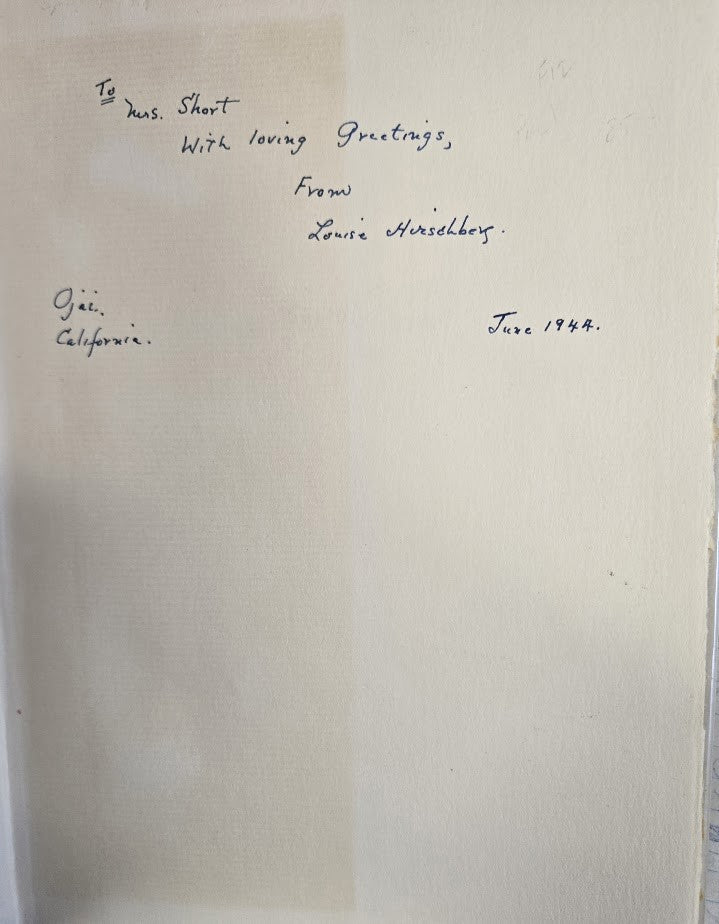 To
Mrs. Short
With loving Greetings,
From
Louise Hirschberg.
Ojai,
California.
June 1944.